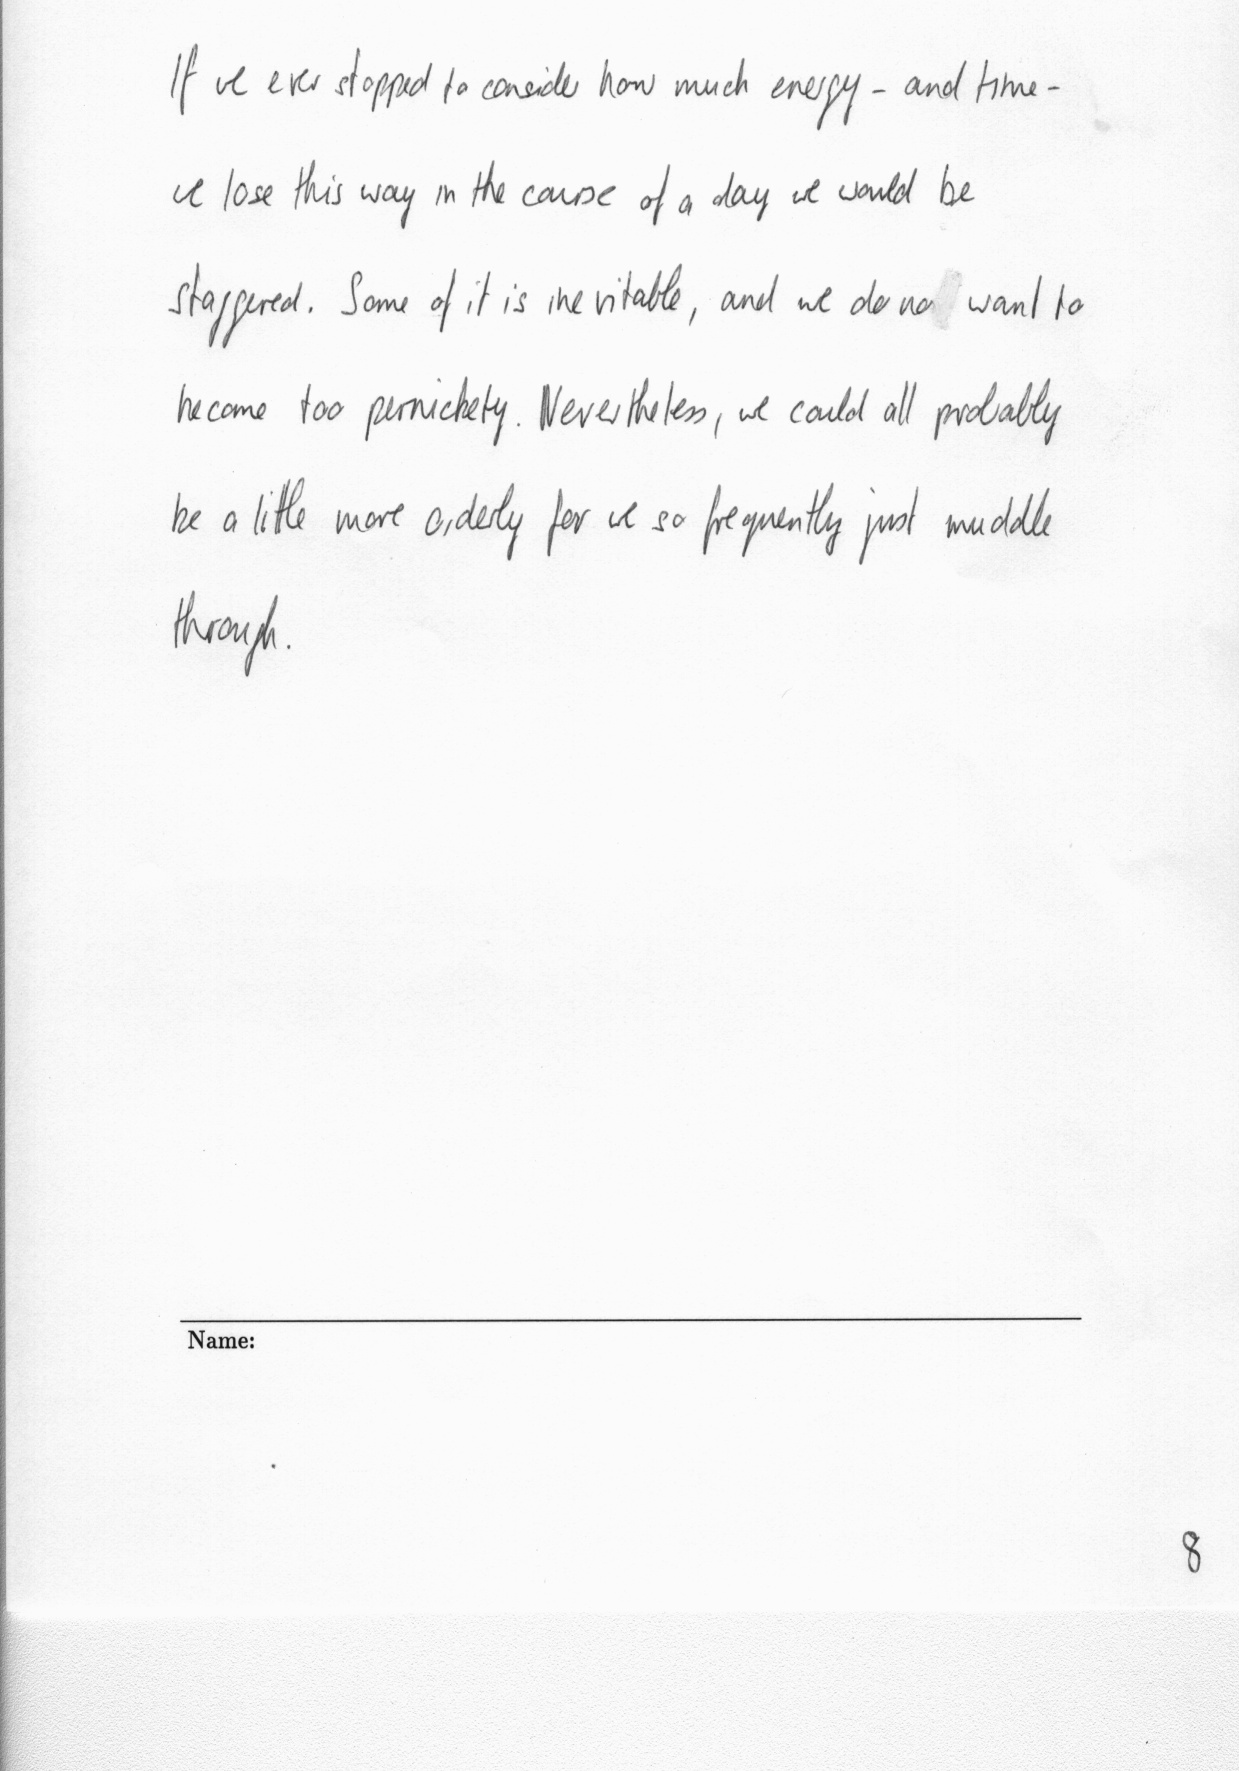 If we ever stopped to consider how much energy - and time -
we lose this way in the course of a day we would be
staggered. Some of it is inevitable, and we do no want to
become too pernickety. Nevertheless, we could all probably
be a little more orderly for we so frequently just muddle
through.
Name:
8